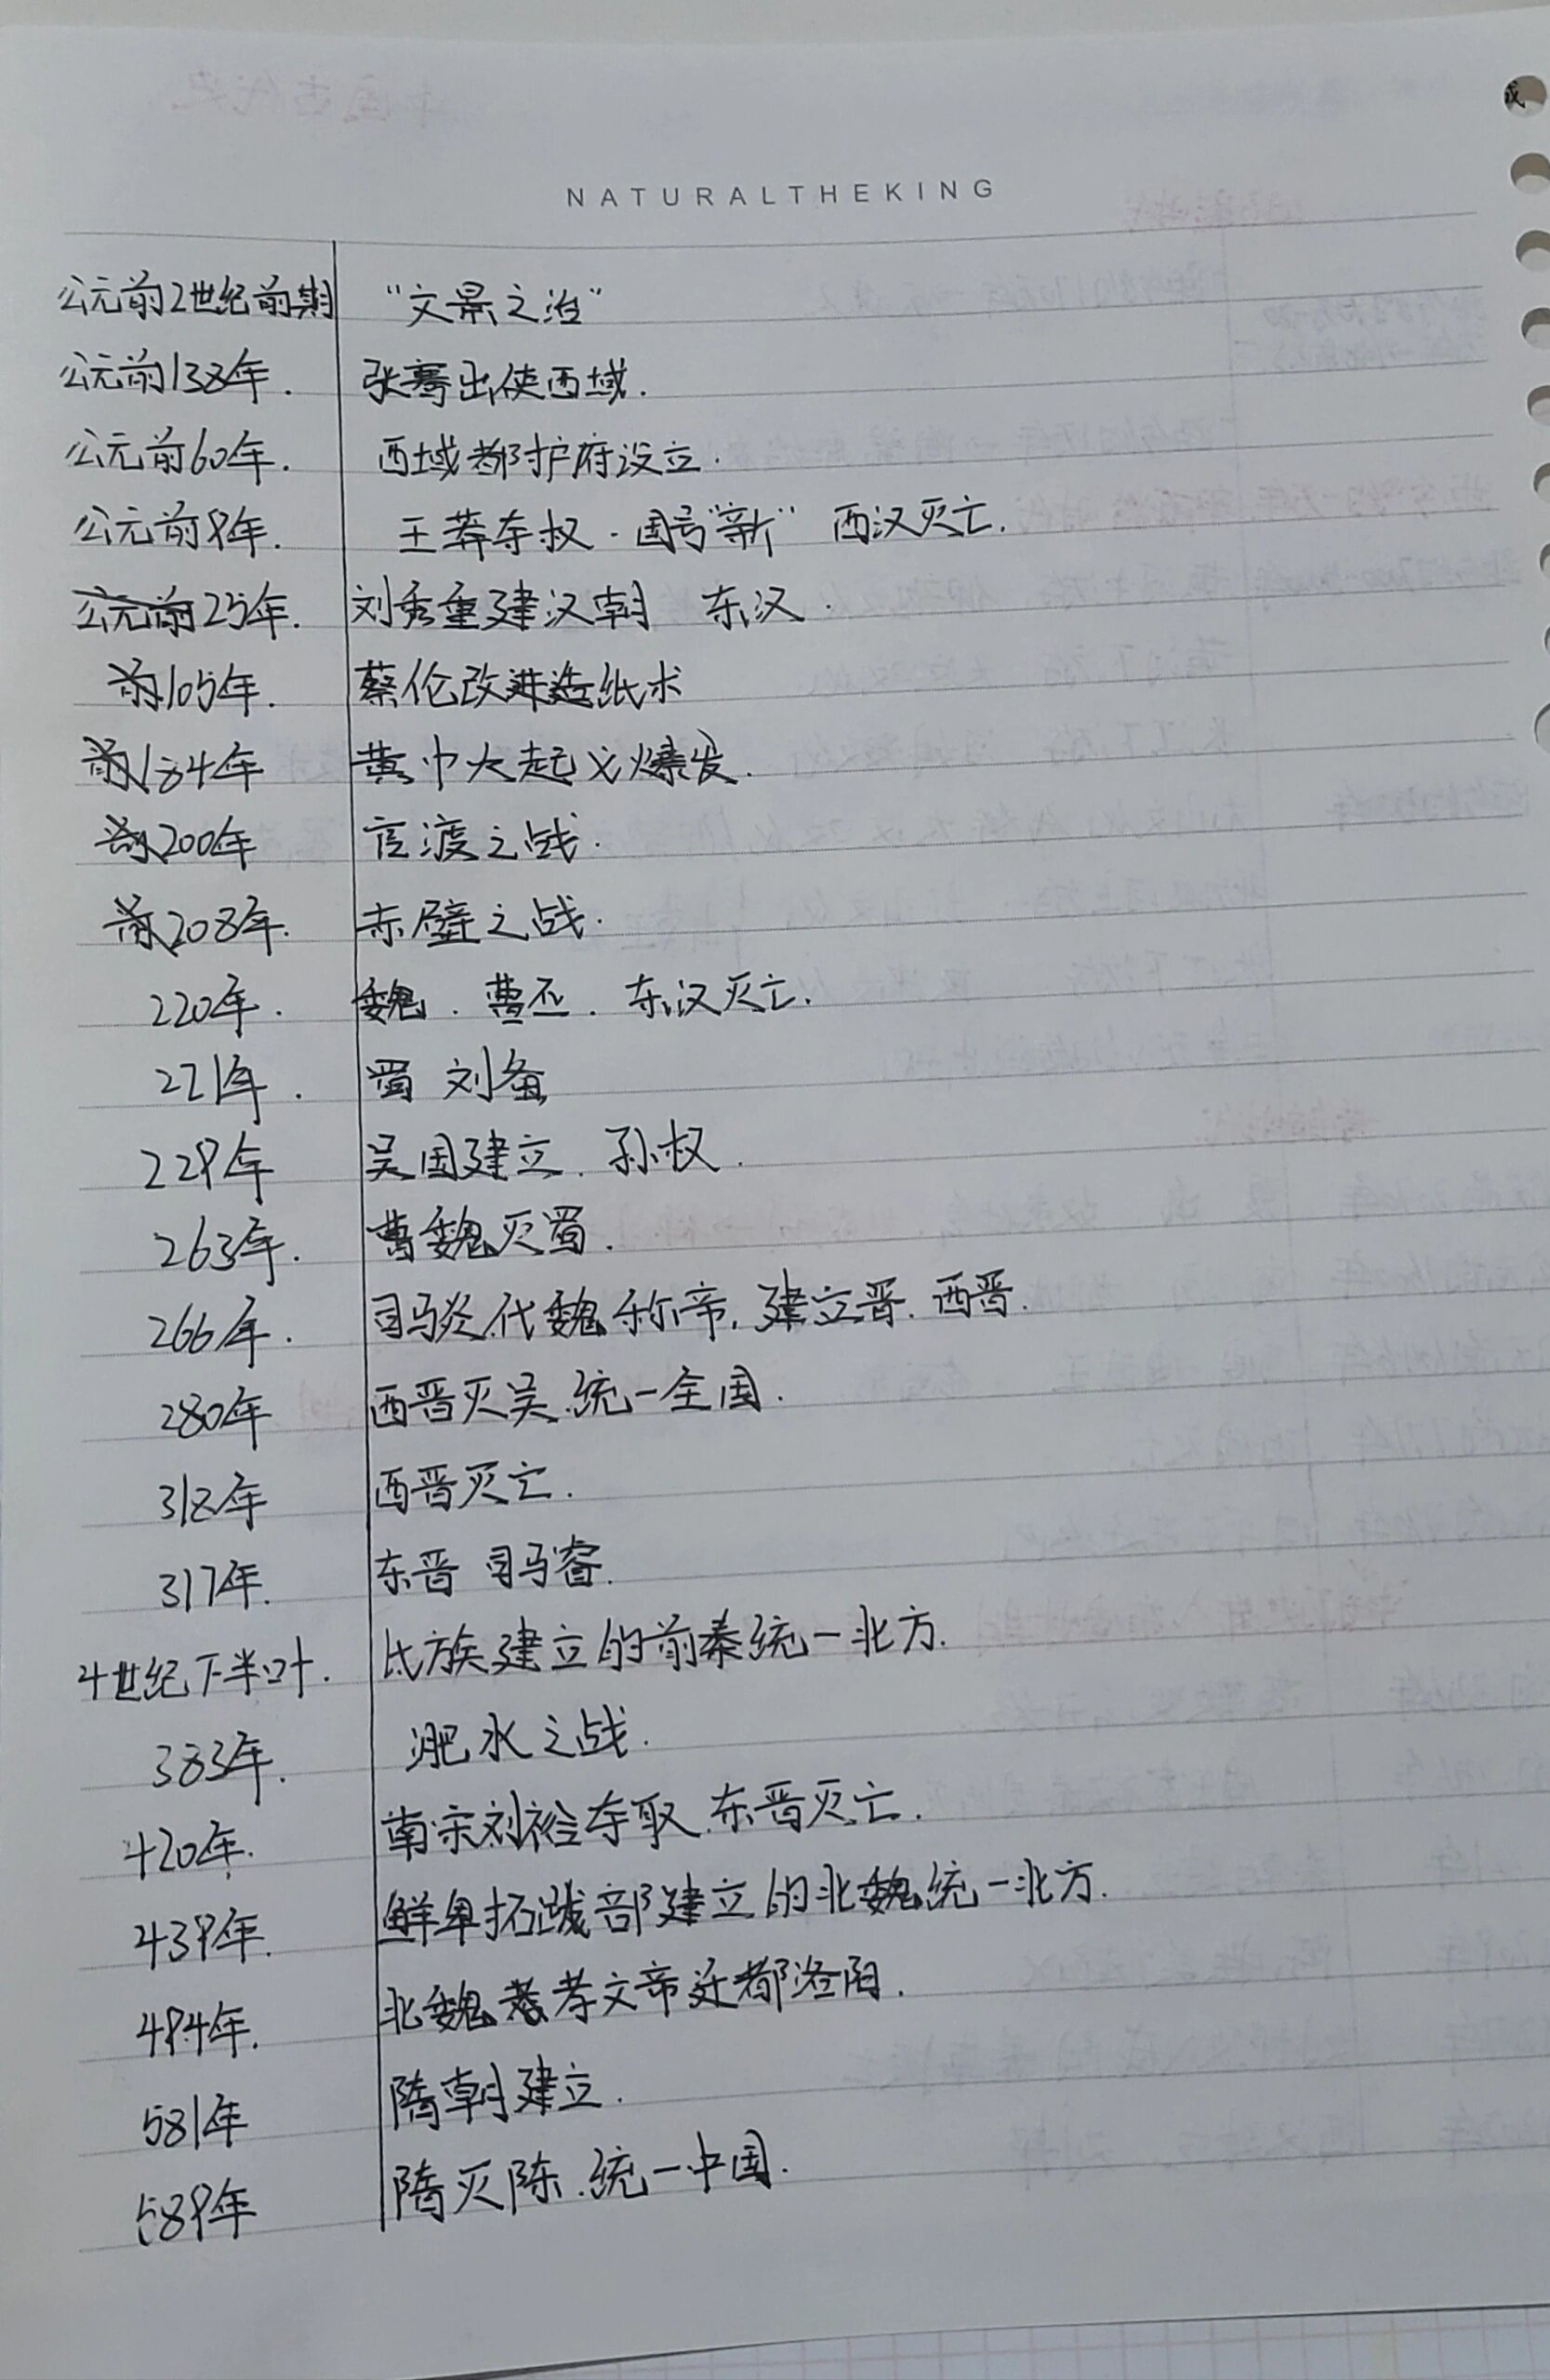 NATURALTHEKING
公元前2世纪前期 “文景之治”
公元前138年. 张骞出使西域.
公元前60年. 西域都护府设立.
公元前9年. 王莽夺权.国号“新” 西汉灭亡.
公元前25年. 刘秀重建汉朝 东汉.
前105年. 蔡伦改进造纸术
前184年 黄巾大起义爆发.
前200年 官渡之战.
前208年. 赤壁之战.
220年. 魏.曹丕.东汉灭亡.
221年. 蜀 刘备
229年 吴国建立.孙权.
263年. 曹魏灭蜀.
266年. 司马炎代魏称帝,建立晋.西晋.
280年 西晋灭吴.统一全国.
318年 西晋灭亡.
317年. 东晋 司马睿.
4世纪下半叶. 氐族建立的前秦统一北方.
383年. 淝水之战.
420年. 南宋刘裕夺取.东晋灭亡.
439年. 鲜卑拓跋部建立的北魏统一北方.
494年. 北魏孝文帝迁都洛阳.
581年 隋朝建立.
589年 隋灭陈.统一中国.